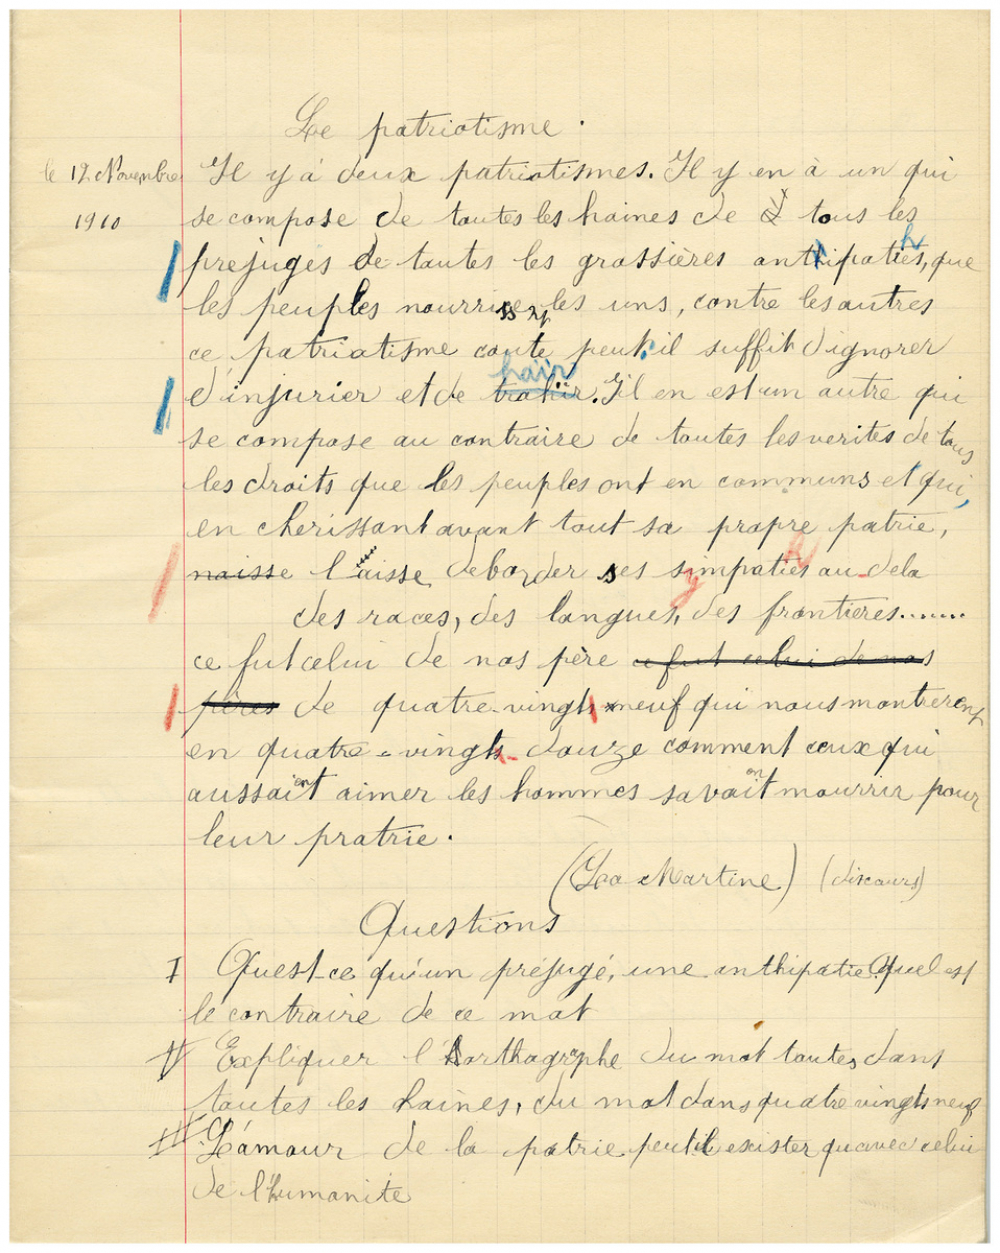 Le patriotisme.
le 12 Novembre
1910
Il y á deux patriotismes. Il y en à un qui
se compose de toutes les haines de tous les
prejugés de toutes les grossières anthipaties, que
les peuples nourrissent les uns, contre les autres
ce patriotisme coute peut il suffit d'ignorer
d'injurier et de trahïr haïr. Il en est un autre qui
se compose au contraire de toutes les verites de tous
les droits que les peuples ont en communs et qui,
en cherissant avant tout sa propre patrie,
naisse laisse deborder ses simpaties au-dela
des races, des langues, des frontieres.......
ce fut celui de nos père ce fut celui de nos
pères de quatre-vingt neuf qui nous montrerent
en quatre-vingt-douze comment ceux qui
aussaient aimer les hommes savaient mourrir pour
leur pratrie.
(La Martine) (discours)
Questions
I Quest-ce qu'un préjugé, une anthipatie Quel est
le contraire de ce mot
II Expliquer l'orthographe du mot toutes dans
toutes les haines, du mot dans quatre vingts neuf
III L'amour de la patrie peut il exister qu'avec celui
de l'humanite